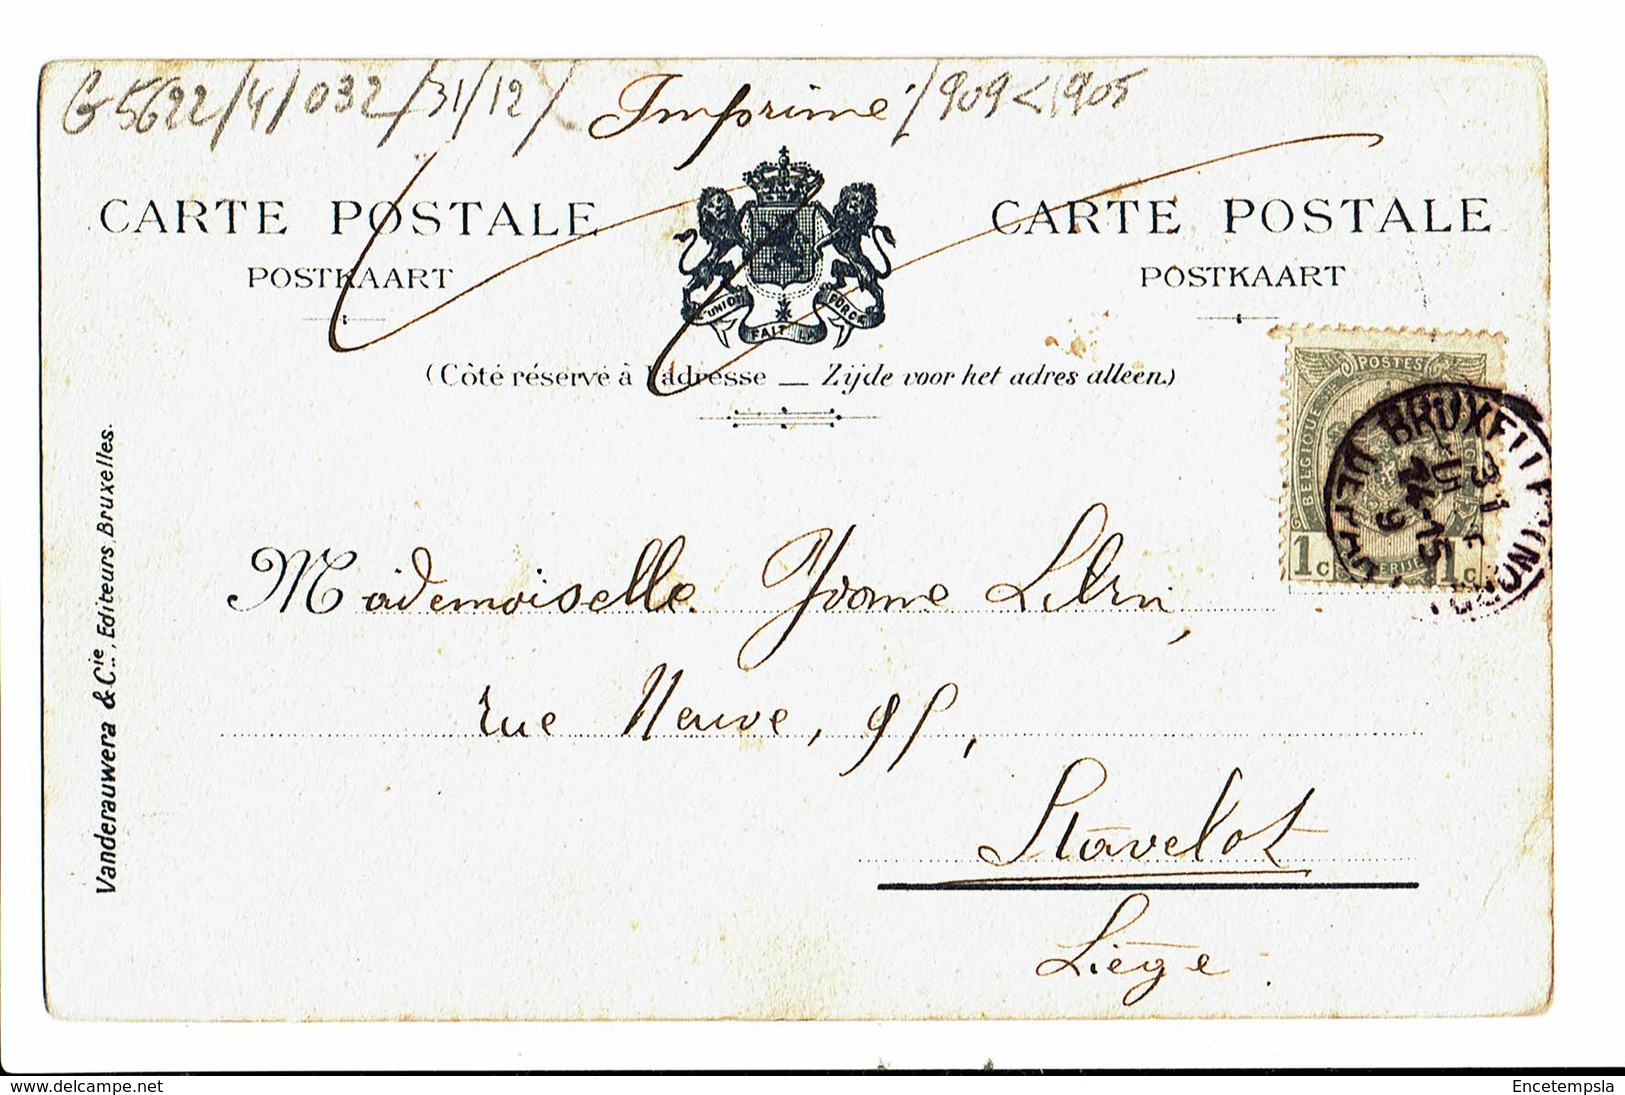 G5622/4/032/31/12/ Imprimé /909<1905
CARTE POSTALE
POSTKAART
CARTE POSTALE
POSTKAART
L'UNION FAIT LA FORCE
(Côté réservé à l'adresse — Zijde voor het adres alleen.)
POSTES
BELGIQUE
1c 1c
BRUXELLES
31
14-15
Vanderauwera & Cie., Editeurs Bruxelles.
Mademoiselle Yvonne
rue Neuve,
Stavelot
Liège.
www.delcampe.net
Encetempsla